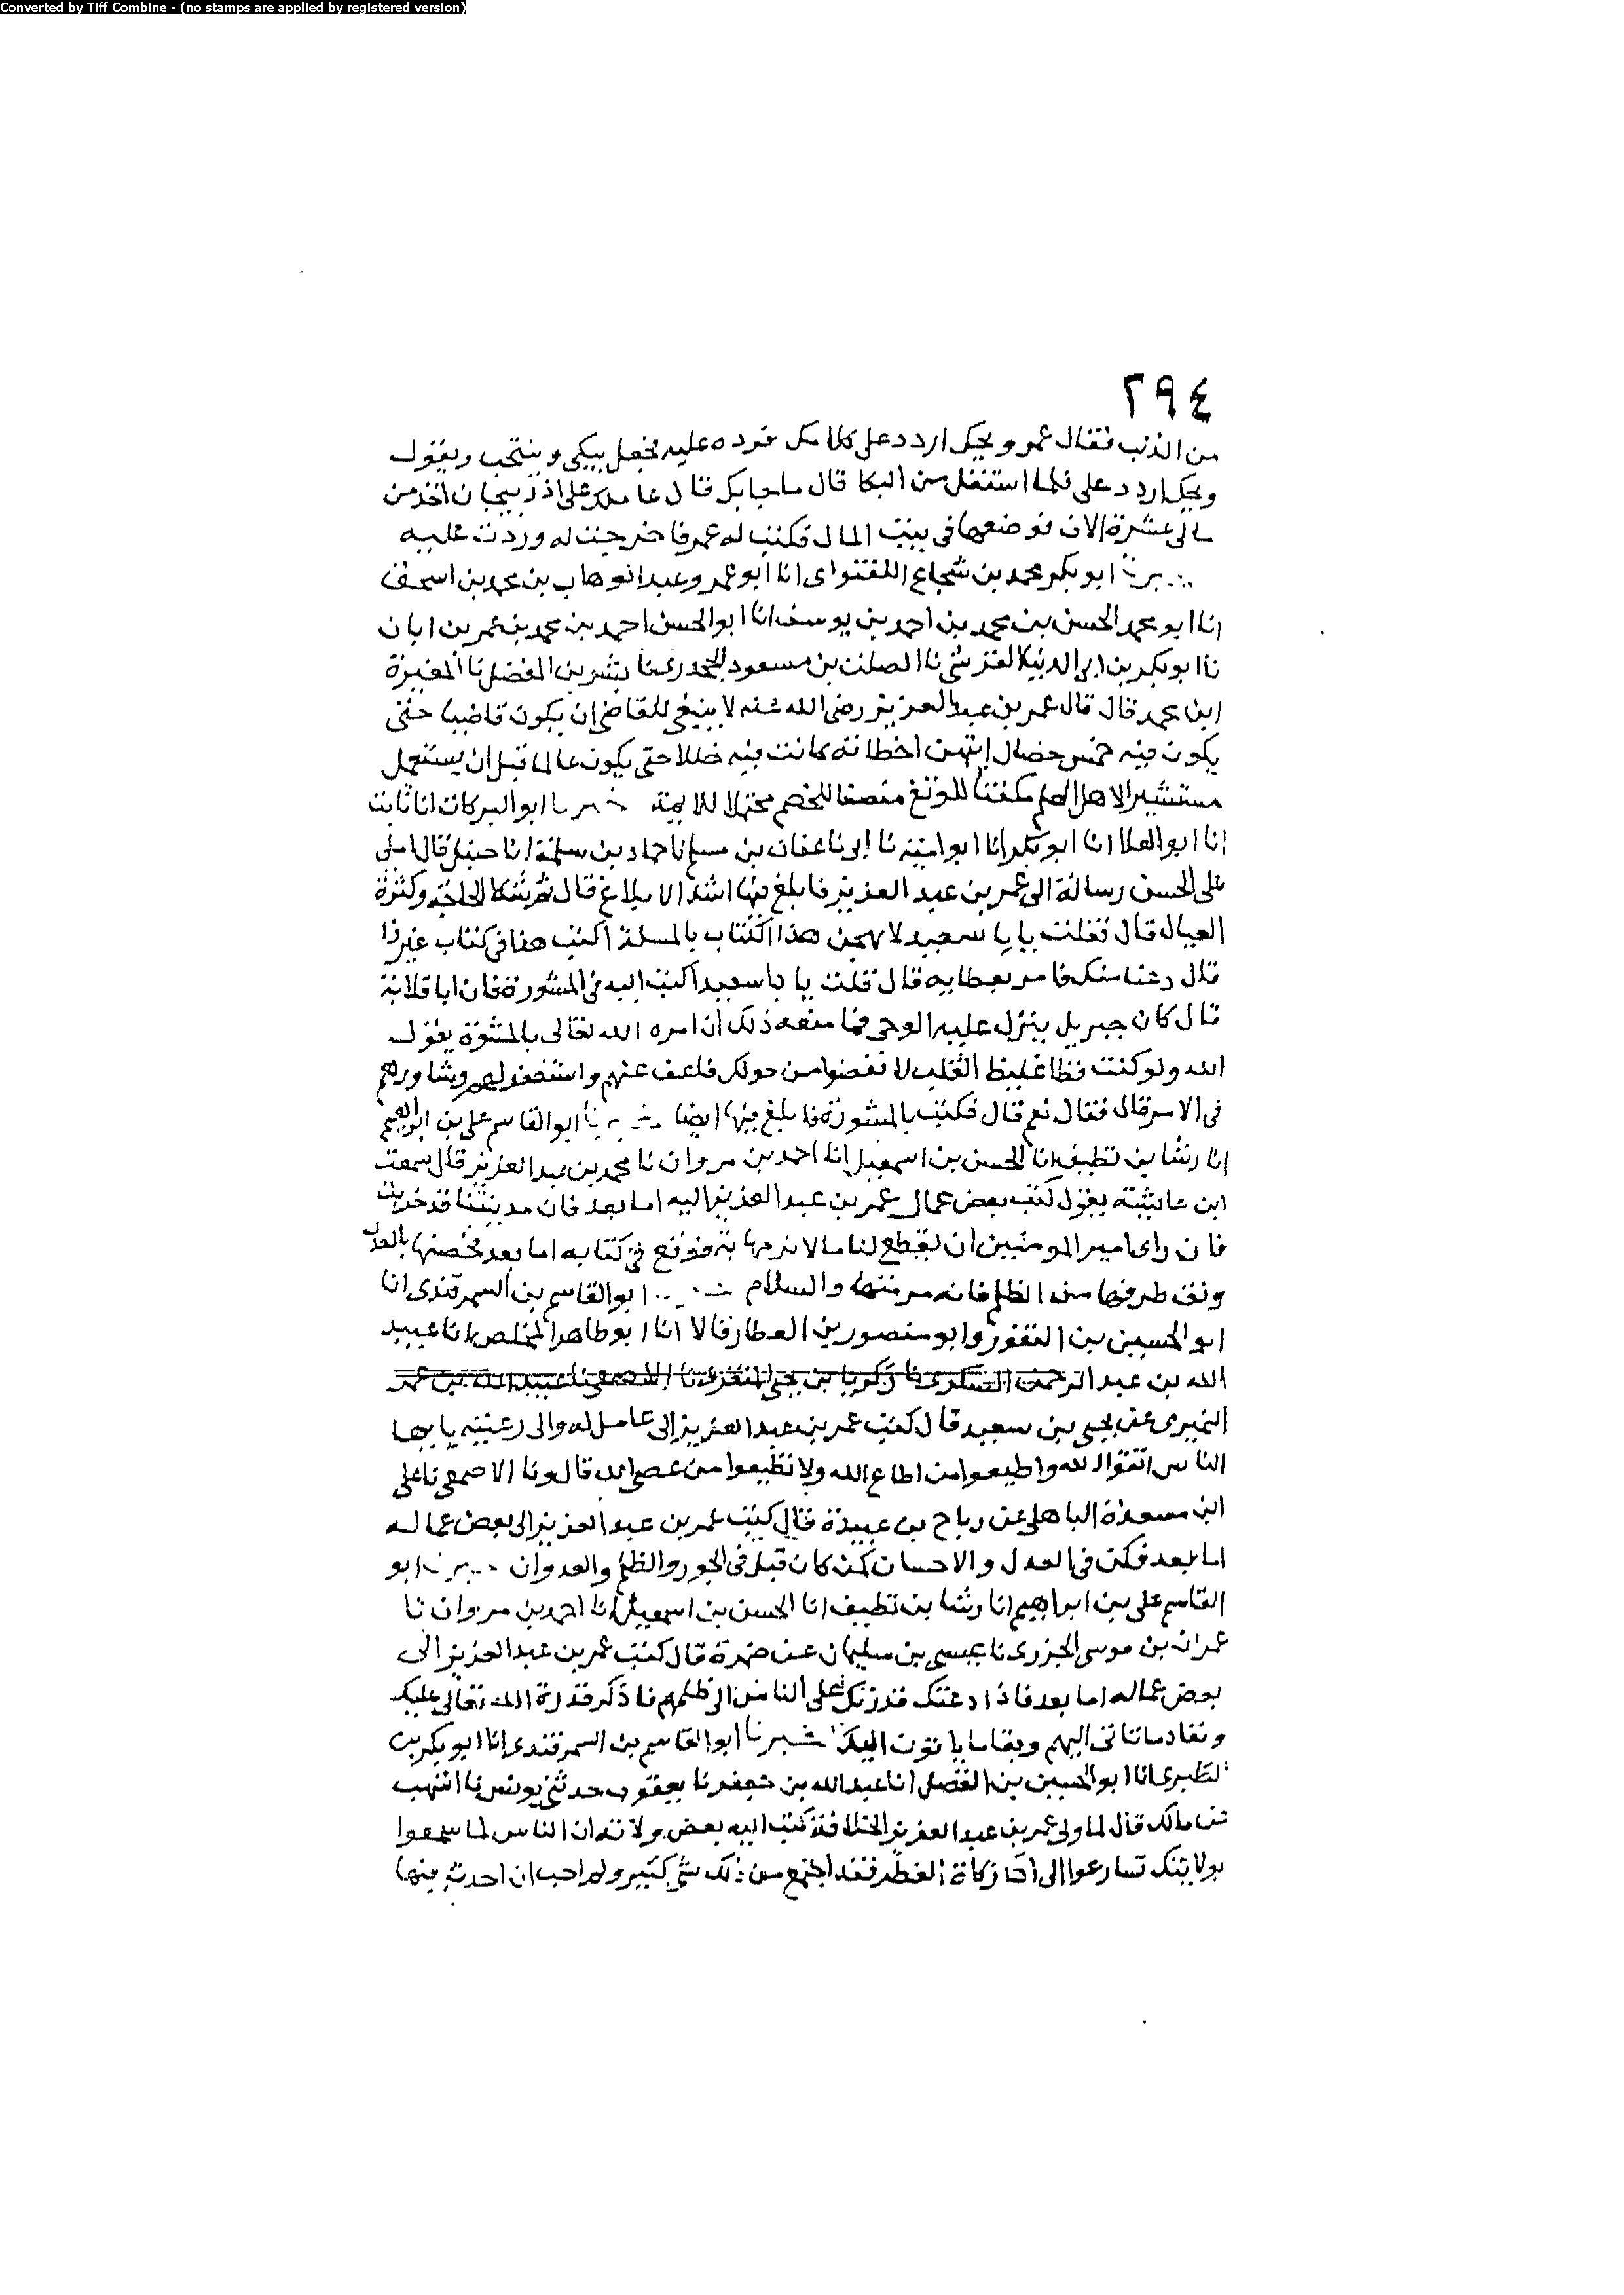 Converted by Tiff Combine - (no stamps are applied by registered version)
٢٩٤
من الذنب فقال عمر ويحك اردد على كلامك فرده عليه فجعل يبكي وينتحب ويقول
ويحك اردد على فلما استنقل من البكا قال ما جا بك قال عاملك على اذربيجان اخذ من
مالى عشرة الاف فوضعها في بيت المال فكتب له عمر فاخرجت له وردت عليه
ابو بكر محمد بن شجاع اللفتوانى انا ابو عمرو عبد الوهاب بن محمد بن اسحق
انا ابو محمد الحسن بن محمد بن احمد بن يوسف انا ابو الحسن احمد بن محمد بن عمر بن ابان
نا ابو بكر بن ابى الدنيا القرشى نا الصلت بن مسعود الجحدرى نا بشر بن المفضل نا المغيرة
ابن محمد قال قال عمر بن عبد العزيز رضى الله عنه لا ينبغى للقاضى ان يكون قاضيا حتى
يكون فيه خمس خصال ايتهن اخطاته كانت فيه خللا حتى يكون عالما قبل ان يستعمل
مستشيرا لاهل العلم ملقتا للرتغ منصفا للخصم محتملا للايمة خبرنا ابو البركات انا ثابت
انا ابو العلا انا ابو بكر انا ابو امية نا ابى نا عفان بن مسلم نا حماد بن سلمة انا حميد قال املى
على الحسن رسالة الى عمر بن عبد العزيز فابلغ فيها اشد الابلاغ قال ثم شكا الحاجة وكثرة
العيال قال فقلت يا با سعيد لا تهجن هذا الكتاب بالمسلة اكتب هذا في كتاب غير ذا
قال دعنا منك فامر بعطايه قال قلت يا با سعيد اكتب اليه في المشورة فان ابا قلابة
قال كان جبريل ينزل عليه الوحى فما منعه ذلك ان امره الله تعالى بالمشورة يقول
الله ولو كنت فظا غليظ القلب لانفضوا من حولك فاعف عنهم واستغفر لهم وشاورهم
في الامر قال فقال نعم قال فكتب بالمشورة فابلغ فيها ايضا خبرنا ابو القاسم على بن ابراهيم
انا رشا بن نظيف انا الحسن بن اسمعيل انا احمد بن مروان نا محمد بن عبد العزيز قال سمعت
ابن عايشة يقول كتب بعض عمال عمر بن عبد العزيز اليه اما بعد فان مدينتنا قد خربت
فان راى امير المومنين ان يقطع لنا مالا نرمها به فوقع في كتابه اما بعد فحصنها بالعدل
ونق طرقها من الظلم فانه مرمتها والسلام ابو القاسم بن السمرقندى انا
ابو الحسين بن النقور وابو منصور بن العطار قالا انا ابو طاهر المخلص انا عبيد
الله بن عبد الرحمن السكرى نا زكريا بن يحيى المنقرى نا الاصمعى نا عبيد الله بن عمر
النميرى عن يحيى بن سعيد قال كتب عمر بن عبد العزيز الى عامل له والى رعيته يا ايها
الناس اتقوا الله واطيعوا من اطاع الله ولا تطيعوا من عصى الله قال ونا الاصمعى نا على
ابن مسعدة الباهلى عن رباح بن عبيدة قال كتب عمر بن عبد العزيز الى بعض عماله
اما بعد فكن في العدل والاحسان كمن كان قبلك في الجور والظلم والعدوان ابو
القاسم على بن ابراهيم انا رشا بن نظيف انا الحسن بن اسمعيل انا احمد بن مروان نا
عمران بن موسى الجزرى نا عيسى بن سليمان عن ضمرة قال كتب عمر بن عبد العزيز الى
بعض عماله اما بعد فاذا دعتك قدرتك على الناس الى ظلمهم فاذكر قدرة الله تعالى عليك
ونفاد ما تاتى اليهم وبقا ما ياتون اليك خبرنا ابو القاسم بن السمرقندى انا ابو بكر بن
الطبرى انا ابو الحسين بن الفضل انا عبد الله بن جعفر نا يعقوب حدثنى يونس نا اشهب
عن مالك قال لما ولى عمر بن عبد العزيز الخلافة كتب اليه بعض ولاته ان الناس لما سمعوا
بولايتك تسارعوا الى اخا زكاة الفطر فقد اجتمع من ذلك شى كثير ولم احب ان احدث فيها